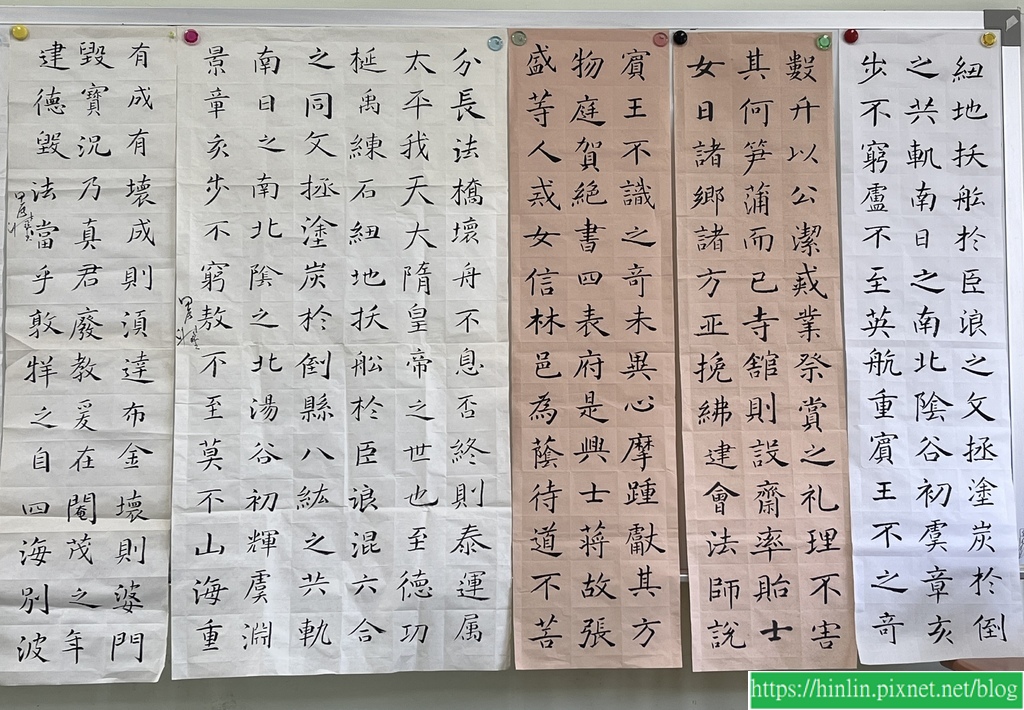 紐地扶舩於臣浪之文拯塗炭於倒
之共軌南日之南北陰谷初虞章亥
步不窮盧不至英航重賓王不之奇
數升以公潔戒業祭賞之礼理不害
其何笋蒲而已寺舘則設齋率貽士
女日諸鄉諸方亚挽紼建會法師說
賓王不識之奇未異心摩踵獻其方
物庭賀絕書四表府是興士蒋故張
盛等人或女信林邑為蔭待道不苦
分長法橋壞舟不息否終則泰運属
太平我天大隋皇帝之世也至德功
梃禹練石紐地扶舩於臣浪混六合
之同文拯塗炭於倒縣八紘之共軌
南日之南北陰之北湯谷初輝虞淵
景章亥步不窮敖不至莫不山海重
有成有壞成則須達布金壞則婆門
毀寶況乃真君廢教爰在閹茂之年
建德毀法當乎敦牂之自四海別波
https://hinlin.pixnet.net/blog